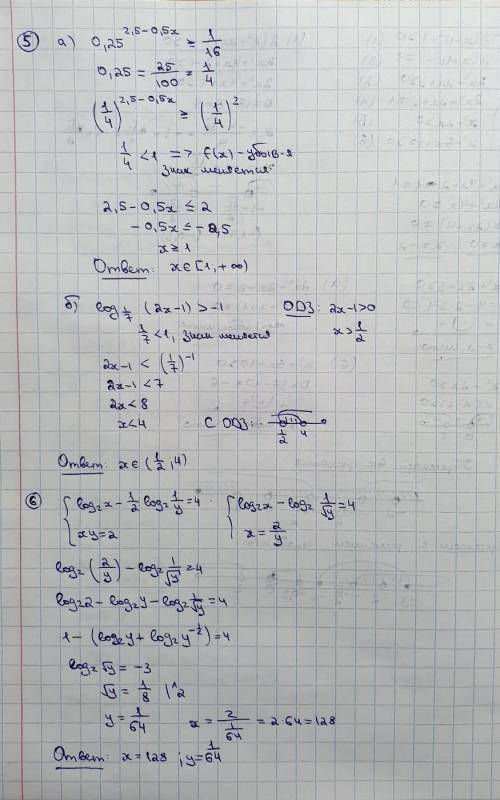 5 а) 0,25^{2,5-0,5x} ≥ 1/16
0,25 = 25/100 = 1/4
(1/4)^{2,5-0,5x} ≥ (1/4)^2
1/4 < 1 => f(x) - убыв-я
знак меняется
2,5-0,5x ≤ 2
-0,5x ≤ -0,5
x ≥ 1
Ответ: x∈[1; +∞)
б) log_{1/7} (2x-1) > -1 ОДЗ: 2x-1>0
1/7 < 1, знак меняется x > 1/2
2x-1 < (1/7)^{-1}
2x-1 < 7
2x < 8
x < 4 С ОДЗ: 1/2 4
Ответ: x∈(1/2; 4)
6 { log₂x - 1/2 log₂ 1/y = 4 { log₂x - log₂ 1/√y = 4
xy = 2 x = 2/y
log₂ (2/y) - log₂ 1/√y = 4
log₂2 - log₂y - log₂ 1/√y = 4
1 - (log₂y + log₂y^{-1/2}) = 4
log₂√y = -3
√y = 1/8 |^2
y = 1/64 x = 2/(1/64) = 2·64 = 128
Ответ: x = 128 ; y = 1/64